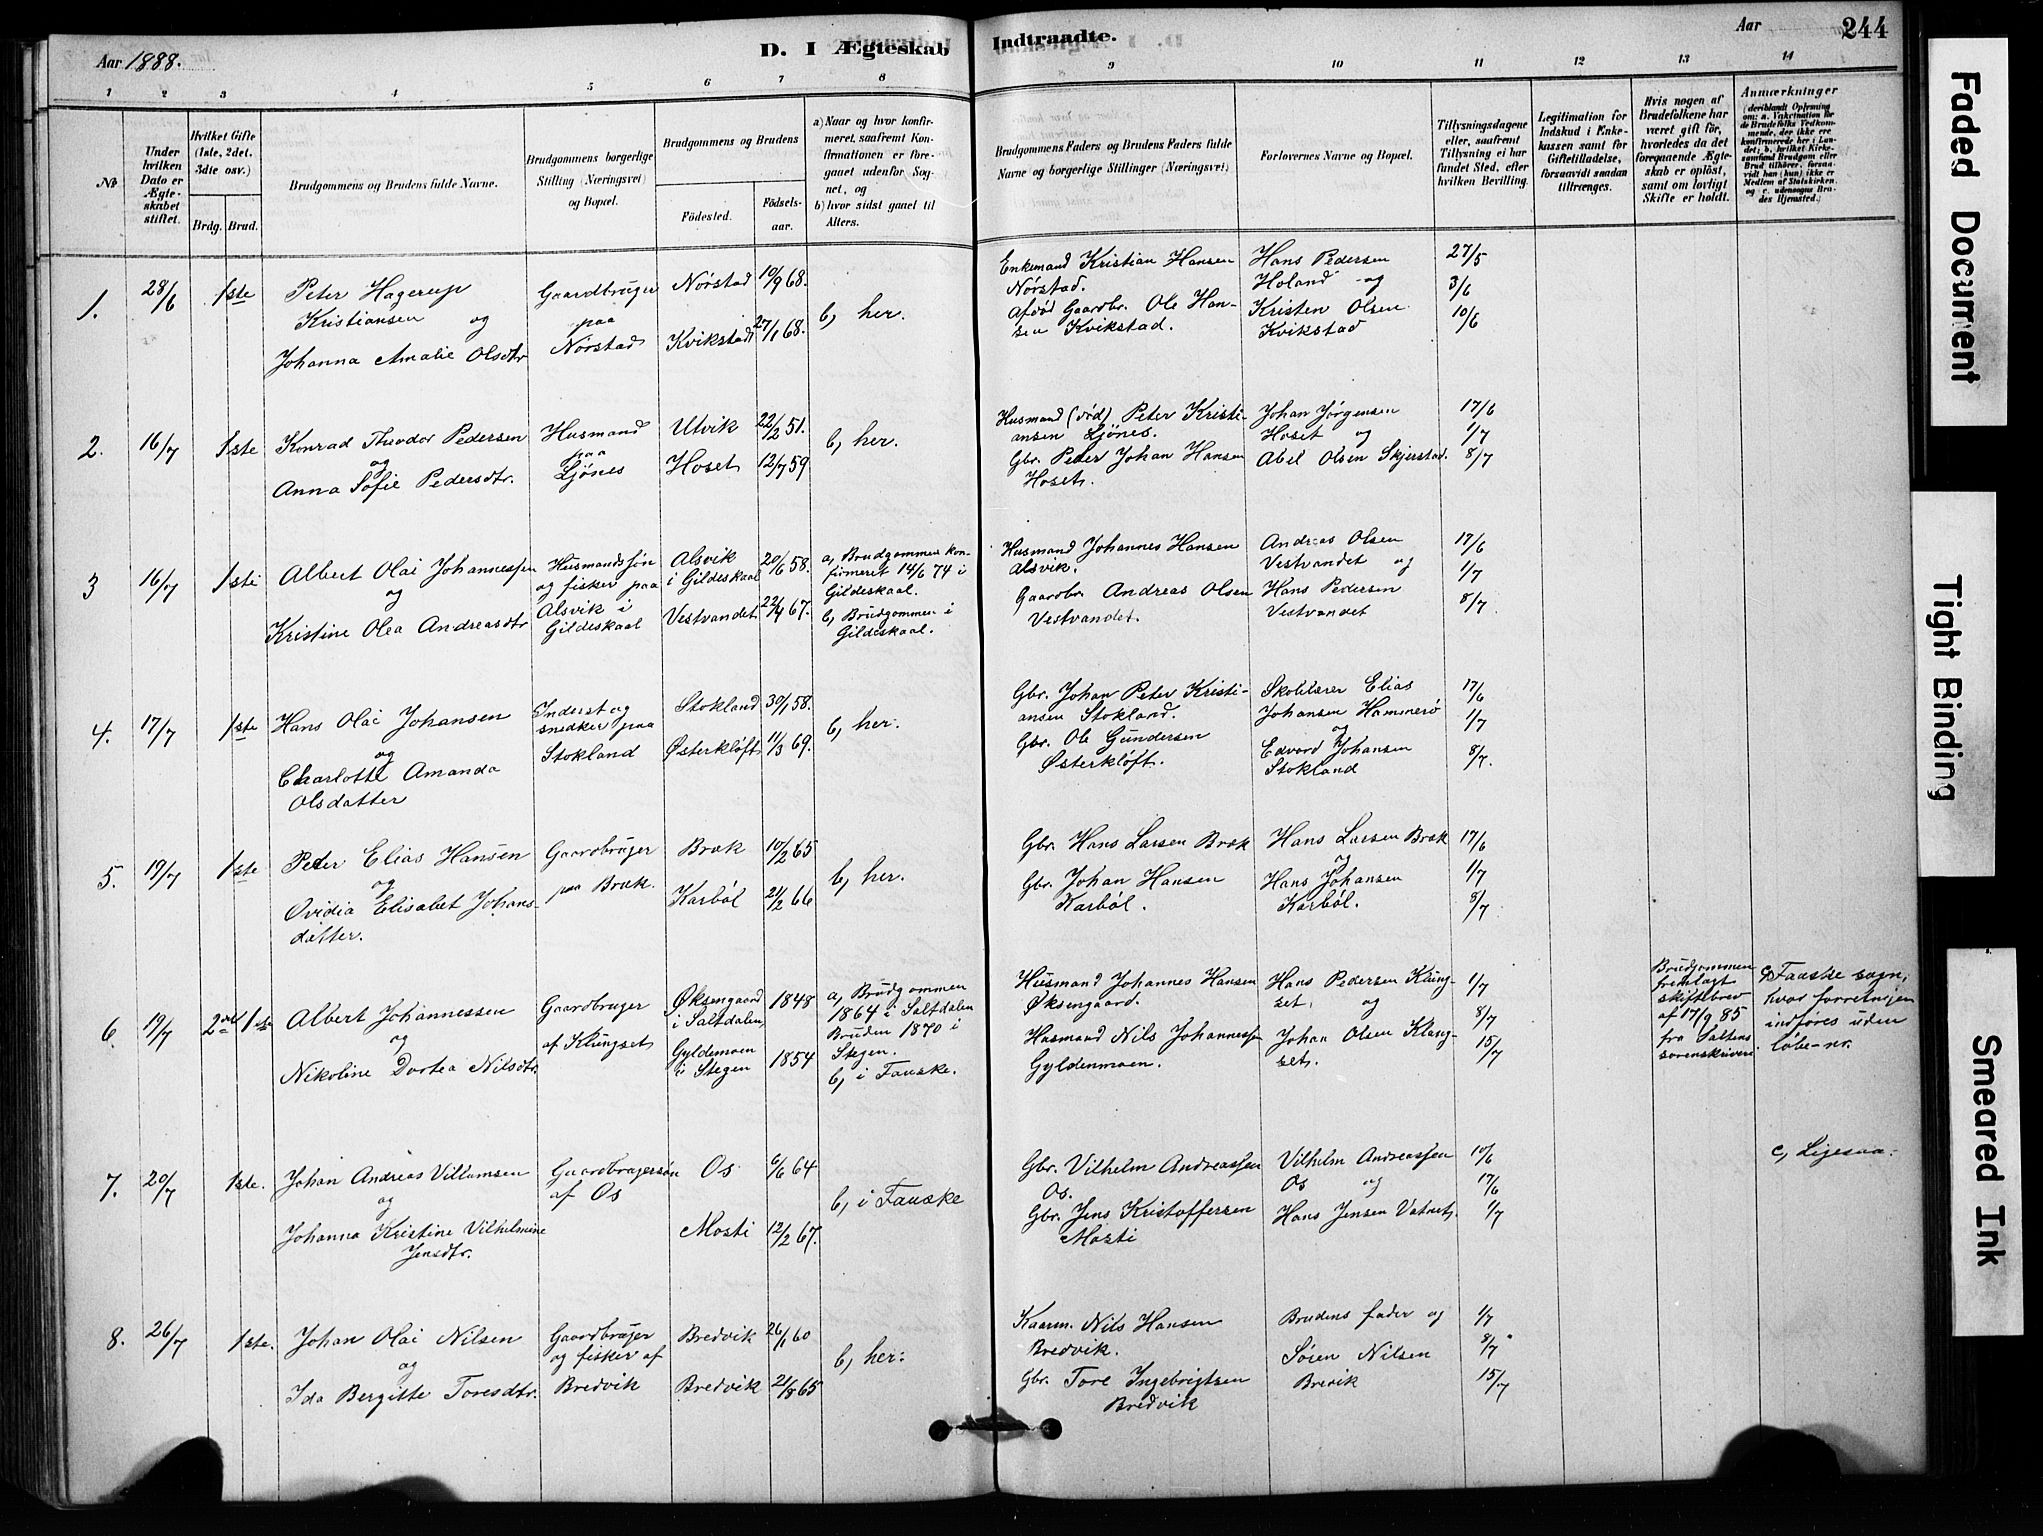 Aar 1888.
D. I Ægteskab
Indtraadte.
Aar
244
1
2
3
4
5
6
7
8
9
10
11
12
13
14
No
Under hvilken Dato er Ægteskabet stiftet.
Hvilket Gifte (1ste, 2det, 3die osv.)
Brdg.
Brud.
Brudgommens og Brudens fulde Navne.
Brudgommens borgerlige Stilling (Næringsvei) og Bopæl.
Brudgommens og Brudens
Fødested.
Fødselsaar.
a) Naar og hvor konfirmeret, saafremt Konfirmationen er foregaaet udenfor Sognet, og
b) hvor sidst gaaet til Alters.
Brudgommens Faders og Brudens Faders fulde Navne og borgerlige Stillinger (Næringsvei)
Forlovernes Navne og Bopæl.
Tillysningsdagene eller, saafremt Tillysning ei har fundet Sted, efter hvilken Bevilling.
Legitimation for Indskud i Enkekassen samt for Giftetilladelse, forsaavidt saadan tiltrænges.
Hvis nogen af Brudefolkene har været gift før, hvorledes da det foregaaende Ægteskab er opløst, samt om lovligt Skifte er holdt.
Anmærkninger
(deriblandt Oplysning om: a. Vakcination for de Brudefolks Vedkommende, der ikke ere konfirmerede her i Landet; b. hvilket Kirkesamfund Brudgom eller Brud tilhører, forsaavidt han (hun) ikke er Medlem af Statskirken, og c. udensogns Brudes Hjemsted.)
1. 28/6 1ste
Peter Hagerup
Kristiansen og
Johanna Amalie Olsdtr
Gaardbruger
paa
Nørstad
Nørstad 10/9 68.
Kvikstad 27/1 68.
b, her.
Enkemand Kristian Hansen
Nørstad.
Afdød Gaardbr. Ole Hansen
Kvikstad.
Hans Pedersen
Holand og
Kristen Olsen
Kvikstad
27/5
3/6
10/6
2. 16/7 1ste
Konrad Theodor Pedersen
og
Anna Sofie Pedersdtr.
Husmand
paa
Ljønes
Utvik 22/2 51.
Hoset 12/7 59
b, her.
Husmand (død) Peter Kristiansen
Ljønes.
Gbr. Peter Johan Hansen
Hoset.
Johan Jørgensen
Hoset og
Abel Olsen Skjerstad.
17/6
1/7
8/7
3 16/7 1ste
Albert Olai Johannessen
og
Kristine Olea Andreasdtr
Husmandsøn
og fisker paa
Alsvik i
Gildeskaal
Alsvik
i Gildeskaal 20/6 58.
Vestvandet 22/9 67.
a, Brudgommen konfirmeret
14/6 74 i
Gildeskaal.
b, Brudgommen i
Gildeskaal.
Husmand Johannes Hansen
Alsvik.
Gaardbr. Andreas Olsen
Vestvandet.
Andreas Olsen
Vestvandet og
Hans Pedersen
Vestvandet
17/6
1/7
8/7
4. 17/7 1ste
Hans Olai Johansen
og
Charlotte Amanda
Olsdatter
Inderst og
snedker paa
Stokland
Stokland 30/1 58.
Østerkløft 11/3 69.
b, her.
Gbr. Johan Peter Kristiansen
Stokland.
Gbr. Ole Gundersen
Østerkløft.
Skolelærer Elias
Johansen Hammerø
og
Edvard Johansen
Stokland
17/6
1/7
8/7.
5. 19/7 1ste
Peter Elias Hansen
og
Ovidia Elisabet Johansdatter.
Gaardbruger
paa Bræk.
Bræk 10/2 65
Karbøl 21/2 66
b, her.
Gbr. Hans Larsen Bræk
Gbr. Johan Hansen
Karbøl.
Hans Larsen Bræk
og
Hans Johansen
Karbøl.
17/6
1/7
8/7
6. 19/7 2det 1ste
Albert Johannessen
og
Nikoline Dortea Nilsdtr.
Gaardbruger
af Klungset
Øksengaard
i Saltdalen, 1848
Gyldemoen
i Stegen 1854
a, Brudgommen
1864 i Saltdalen
Bruden 1870 i
Stegen.
b, i Fauske.
Husmand Johannes Hansen
Øksengaard.
Husmand Nils Johannessen
Gyldenmoen.
Hans Pedersen Klungset,
og
Johan Olsen Klungset.
1/7
8/7
15/7
Brudgommen
fremlagt
skiftebrev
af 17/9 85
fra Saltens
sorenskriveri
c, Fauske sogn,
hvor forretningen
indføres uden
løbe-nr.
7. 20/7 1ste.
Johan Andreas Villumsen
og
Johanna Kristine Vilhelmine
Jensdtr.
Gaardbrugersøn
af Os
Os 6/6 64
Mosti 12/2 67.
b, i Fauske
Gbr. Vilhelm Andreassen
Os.
Gbr. Jens Kristoffersen
Mosti
Vilhelm Andreassen
Os og
Hans Jensen Vatnet.
10/6
17/6
1/7
c, Ligesaa.
8. 26/7 1ste.
Johan Olai Nilsen
og
Ida Bergitte Toresdtr.
Gaardbruger
og fisker af
Bredvik
Bredvik 26/1 60
Bredvik 21/8 65
b, her.
Kaarm. Nils Hansen
Bredvik.
Gbr. Tore Ingebrigtsen
Bredvik
Brudens fader og
Søren Nilsen
Brevik
1/7
8/7
15/7
Faded Document
Tight Binding
Smeared Ink